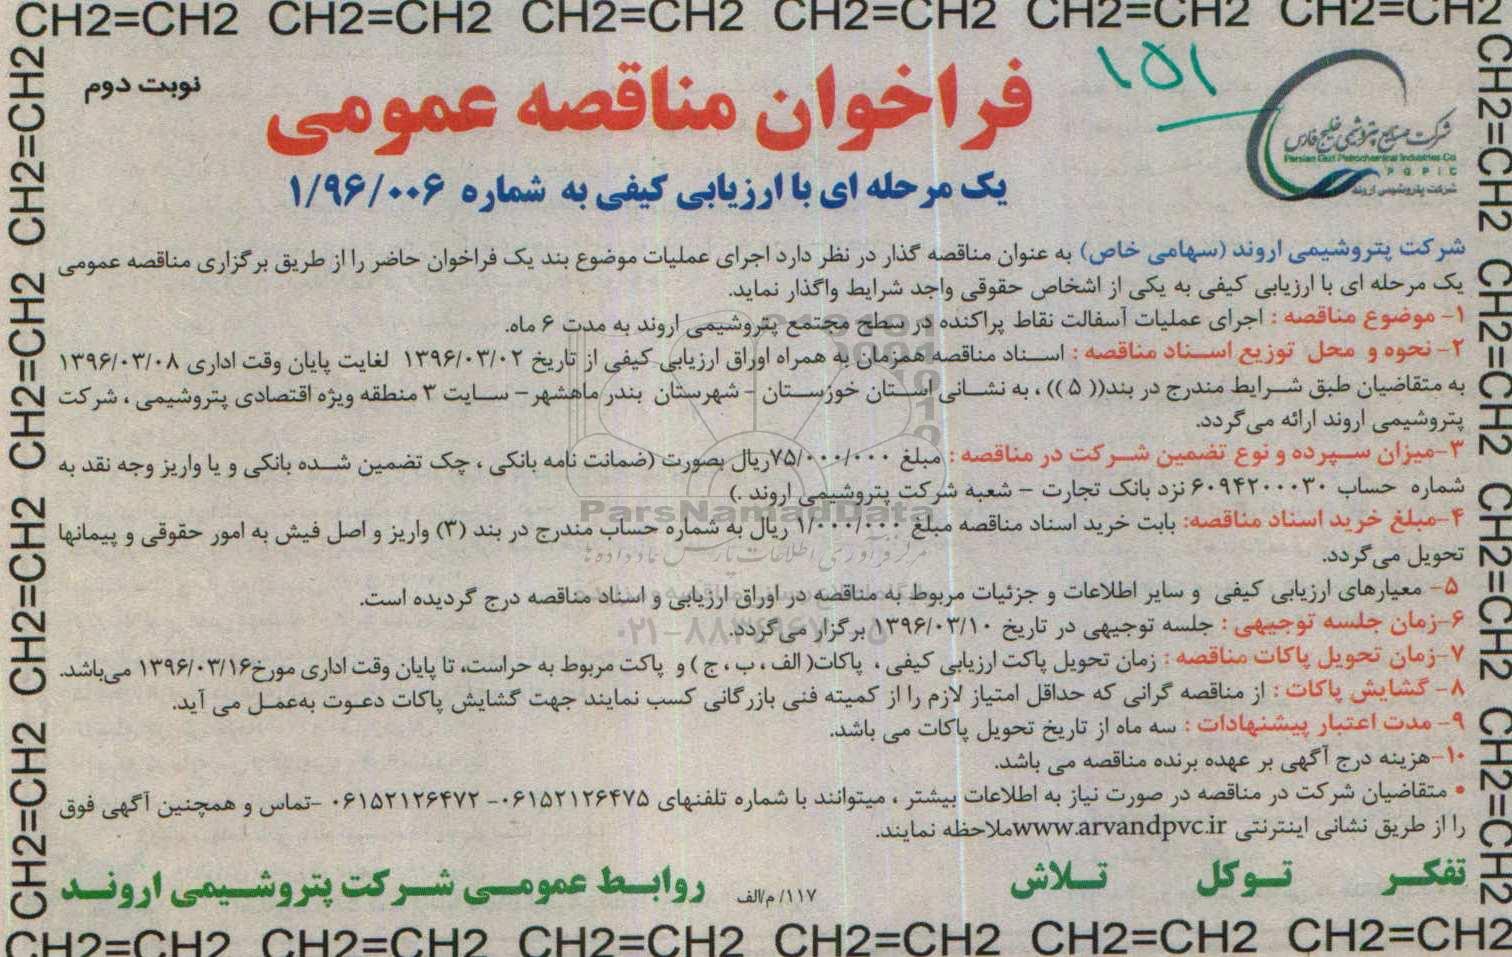 CH2=CH2 CH2=CH2 CH2=CH2 CH2=CH2 CH2=CH2 CH2=CH2
۱۵۱
نوبت دوم
فراخوان مناقصه عمومی
یک مرحله ای با ارزیابی کیفی به شماره ۱/۹۶/۰۰۶
شرکت صنایع پتروشیمی خلیج فارس
Persian Gulf Petrochemical Industries Co
PGPIC
شرکت پتروشیمی اروند
شرکت پتروشیمی اروند (سهامی خاص) به عنوان مناقصه گذار در نظر دارد اجرای عملیات موضوع بند یک فراخوان حاضر را از طریق برگزاری مناقصه عمومی
یک مرحله ای با ارزیابی کیفی به یکی از اشخاص حقوقی واجد شرایط واگذار نماید.
۱- موضوع مناقصه : اجرای عملیات آسفالت نقاط پراکنده در سطح مجتمع پتروشیمی اروند به مدت ۶ ماه.
۲- نحوه و محل توزیع اسناد مناقصه : اسناد مناقصه همزمان به همراه اوراق ارزیابی کیفی از تاریخ ۱۳۹۶/۰۳/۰۲ لغایت پایان وقت اداری ۱۳۹۶/۰۳/۰۸
به متقاضیان طبق شرایط مندرج در بند(( ۵ )) ، به نشانی استان خوزستان - شهرستان بندر ماهشهر - سایت ۳ منطقه ویژه اقتصادی پتروشیمی ، شرکت
پتروشیمی اروند ارائه می‌گردد.
۳-میزان سپرده و نوع تضمین شرکت در مناقصه : مبلغ ۷۵/۰۰۰/۰۰۰ریال بصورت (ضمانت نامه بانکی ، چک تضمین شده بانکی و یا واریز وجه نقد به
شماره حساب ۶۰۹۴۲۰۰۰۳۰ نزد بانک تجارت – شعبه شرکت پتروشیمی اروند .)
ParsNamadData
۴-مبلغ خرید اسناد مناقصه: بابت خرید اسناد مناقصه مبلغ ۱/۰۰۰/۰۰۰ ریال به شماره حساب مندرج در بند (۳) واریز و اصل فیش به امور حقوقی و پیمانها
تحویل می‌گردد.
۵- معیارهای ارزیابی کیفی و سایر اطلاعات و جزئیات مربوط به مناقصه در اوراق ارزیابی و اسناد مناقصه درج گردیده است.
۶-زمان جلسه توجیهی : جلسه توجیهی در تاریخ ۱۳۹۶/۰۳/۱۰ برگزار می‌گردد.
۷-زمان تحویل پاکات مناقصه : زمان تحویل پاکت ارزیابی کیفی ، پاکات( الف ، ب ، ج ) و پاکت مربوط به حراست، تا پایان وقت اداری مورخ۱۳۹۶/۰۳/۱۶ می‌باشد.
۸- گشایش پاکات : از مناقصه گرانی که حداقل امتیاز لازم را از کمیته فنی بازرگانی کسب نمایند جهت گشایش پاکات دعوت به‌عمل می آید.
۹- مدت اعتبار پیشنهادات : سه ماه از تاریخ تحویل پاکات می باشد.
۱۰-هزینه درج آگهی بر عهده برنده مناقصه می باشد.
• متقاضیان شرکت در مناقصه در صورت نیاز به اطلاعات بیشتر ، میتوانند با شماره تلفنهای ۰۶۱۵۲۱۲۶۴۷۵- ۰۶۱۵۲۱۲۶۴۷۲ -تماس و همچنین آگهی فوق
را از طریق نشانی اینترنتی www.arvandpvc.irملاحظه نمایند.
تفکر توکل تلاش
۱۱۷/ م/الف
روابط عمومی شرکت پتروشیمی اروند
CH2=CH2 CH2=CH2 CH2=CH2 CH2=CH2
CH2=CH2 CH2=CH2 CH2=CH2 CH2=CH2
CH2=CH2 CH2=CH2 CH2=CH2 CH2=CH2 CH2=CH2 CH2=CH2